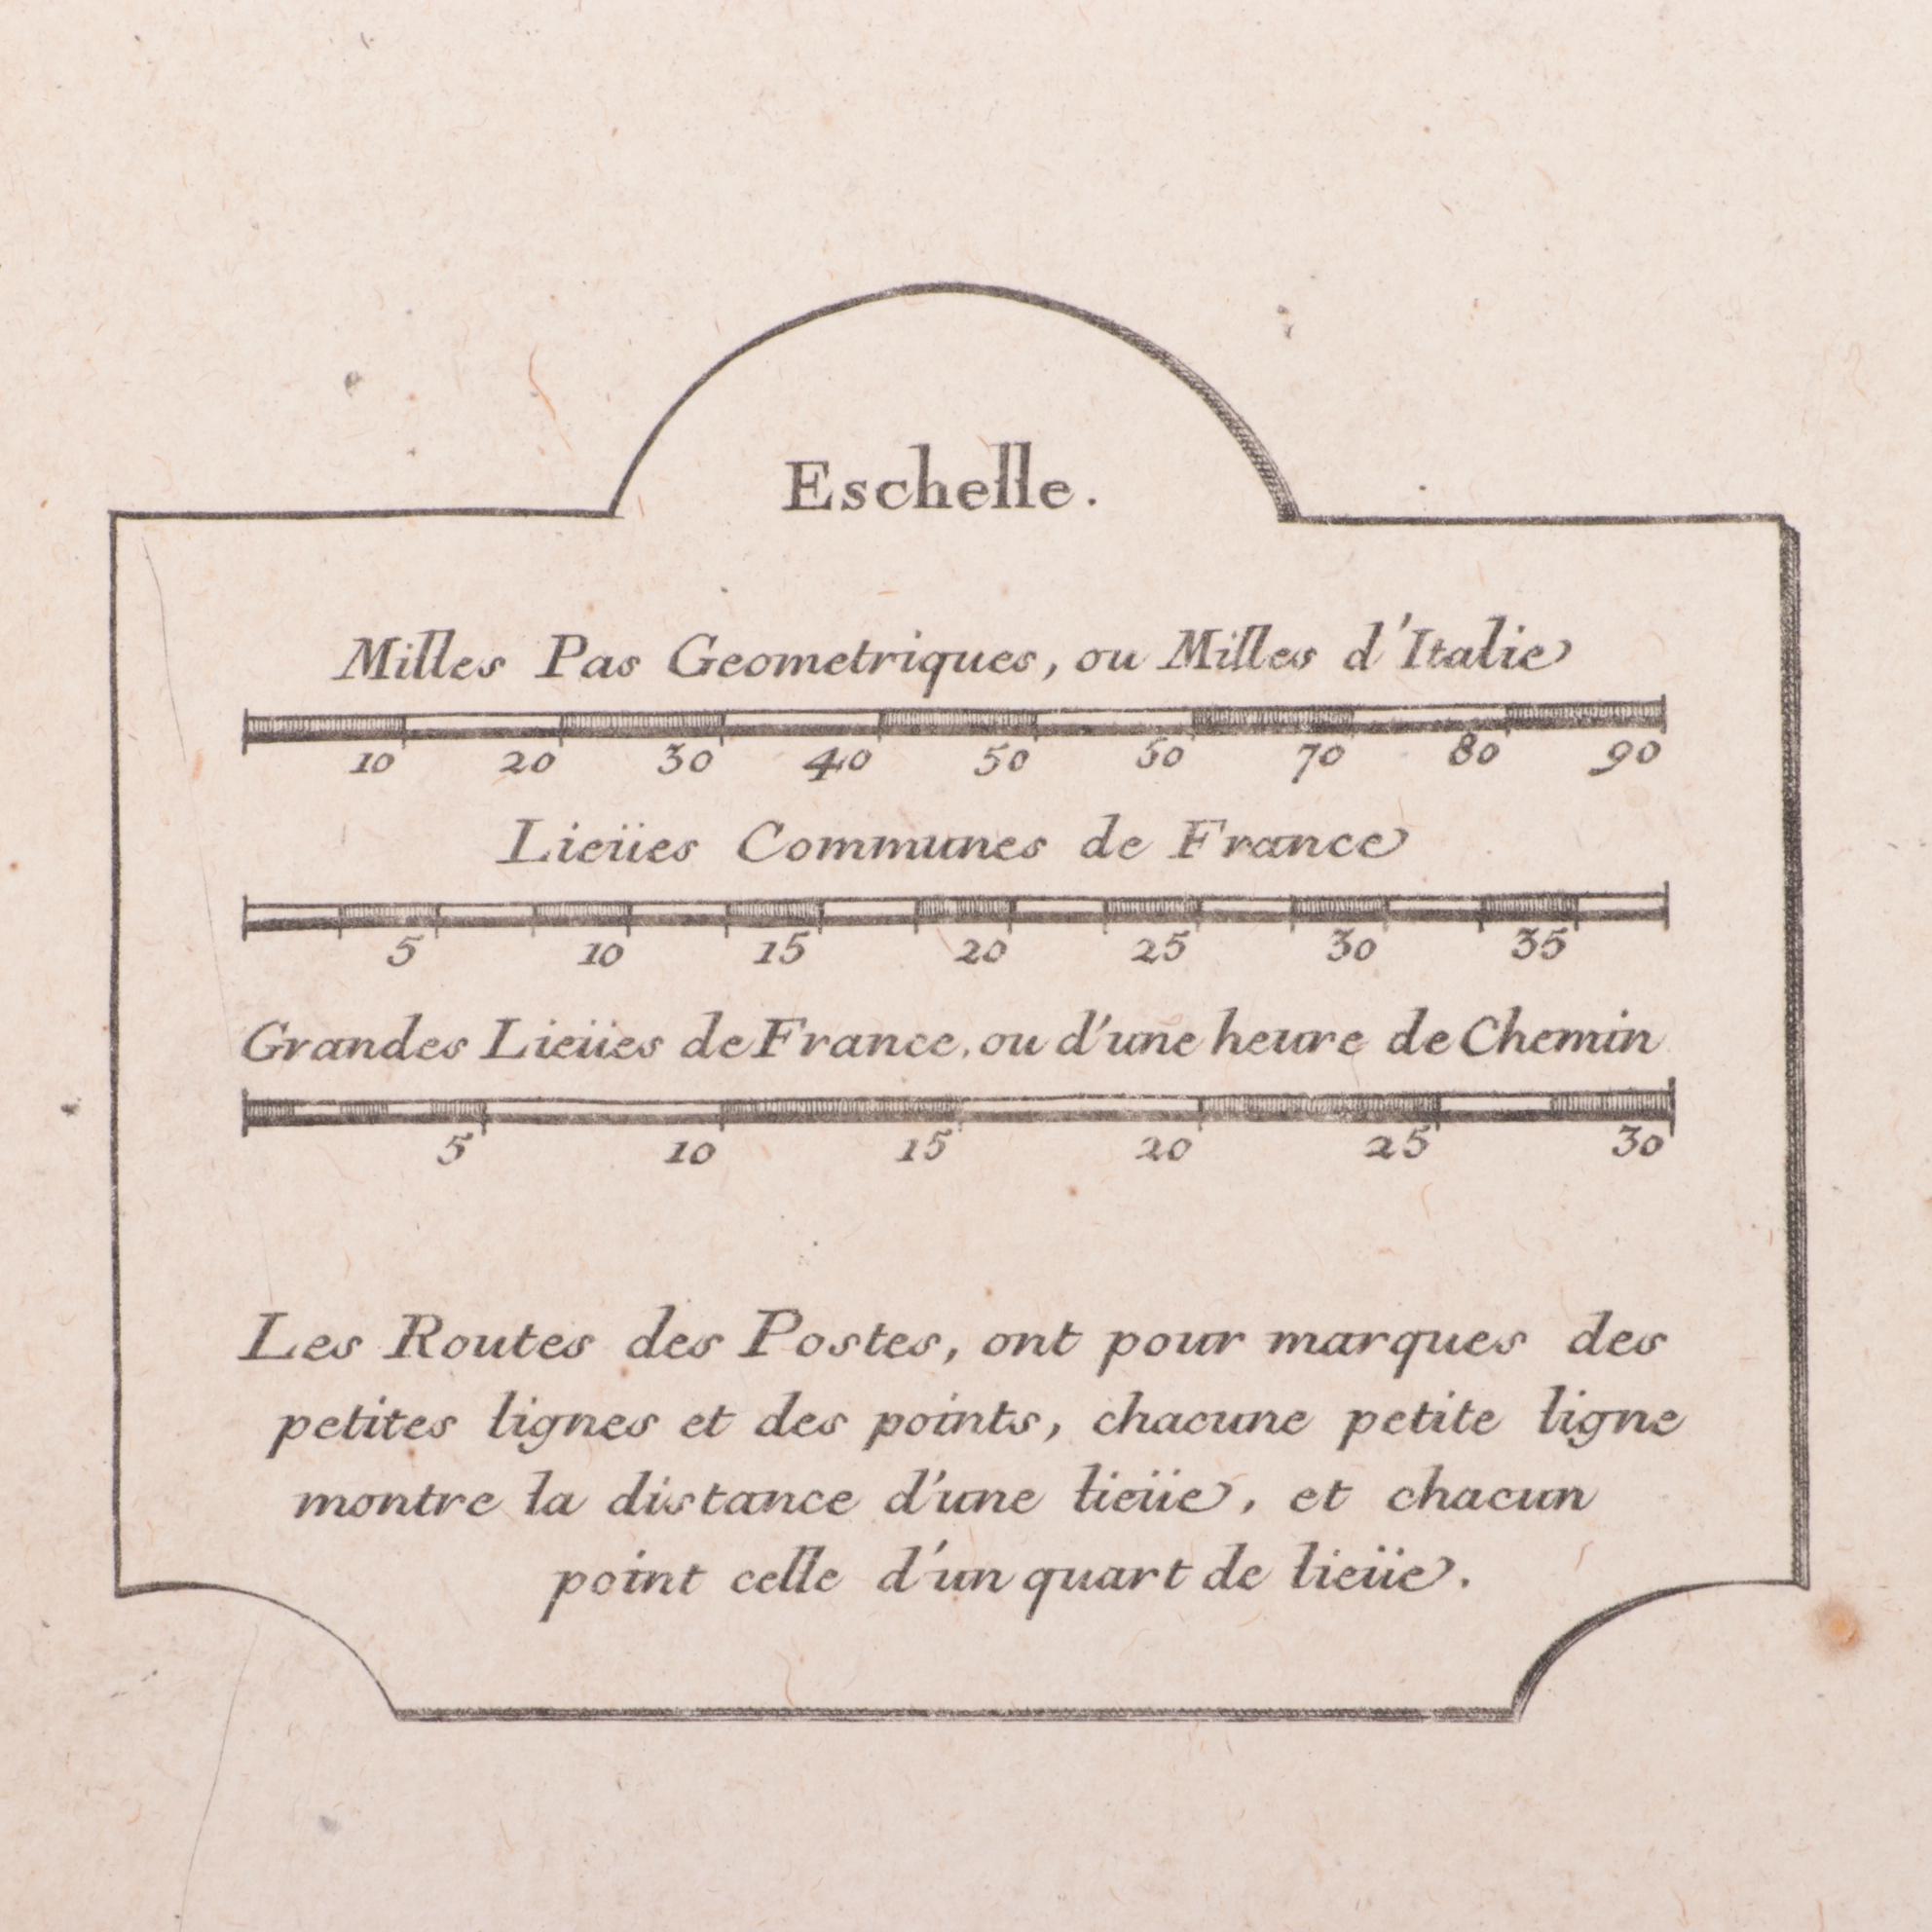 Eschelle.
Milles Pas Geometriques, ou Milles d'Italie
10 20 30 40 50 50 70 80 90
Lieües Communes de France
5 10 15 20 25 30 35
Grandes Lieües de France, ou d'une heure de Chemin
5 10 15 20 25 30
Les Routes des Postes, ont pour marques des
petites lignes et des points, chacune petite ligne
montre la distance d'une lieüe, et chacun
point celle d'un quart de lieüe.